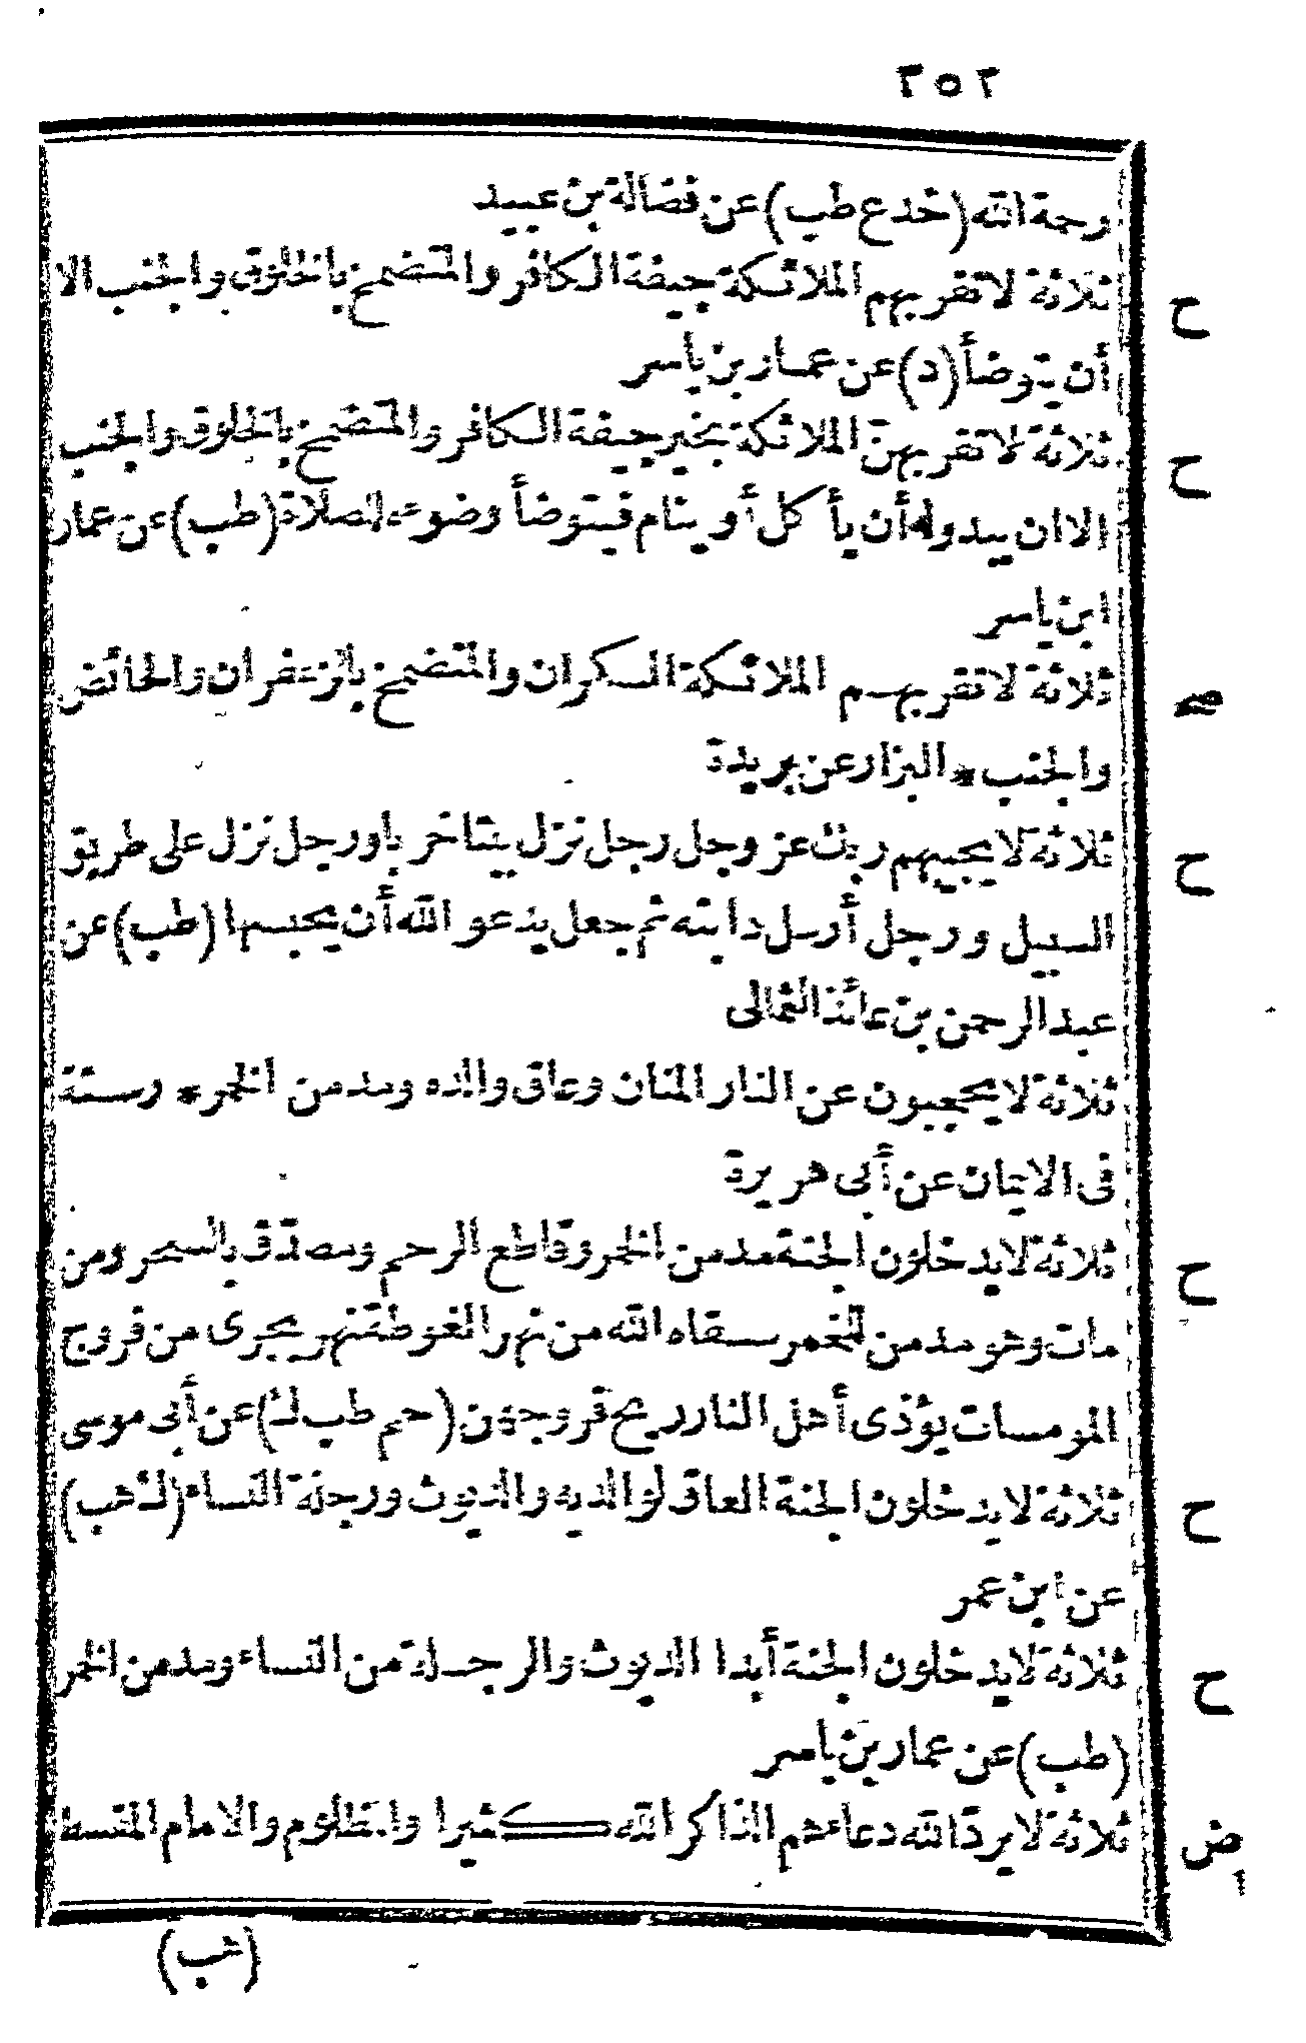 ٢٥٢
رحمة الله (خد ع طب) عن فضالة بن عبيد
ثلاثة لا تقربهم الملائكة جيفة الكافر والمتضمخ بالخلوق والجنب الا
ح
أن يتوضأ (د) عن عمار بن ياسر
ثلاثة لا تقربهن الملائكة بخير جيفة الكافر والمتضمخ بالخلوق والجنب
ح
الا ان يبدو له أن يأكل أو ينام فيتوضأ وضوءه للصلاة (طب) عن عمار
ابن ياسر
ثلاثة لا تقربهم الملائكة السكران والمتضمخ بالزعفران والحائض
صح
والجنب * البزار عن بريدة
ثلاثة لا يجيبهم ربك عز وجل رجل نزل بيتا خربا ورجل نزل على طريق
ح
السبيل ورجل أرسل دابته ثم جعل يدعو الله أن يحبسها (طب) عن
عبد الرحمن بن عائذ الثمالى
ثلاثة لا يحجبون عن النار المنان وعاق والده ومدمن الخمر * رستة
فى الايمان عن أبى هريرة
ثلاثة لا يدخلون الجنة مدمن الخمر وقاطع الرحم ومصدق بالسحر ومن
ح
مات وهو مدمن للخمر سقاه الله من نهر الغوطة نهر يجرى من فروج
المومسات يؤذى أهل النار ريح فروجهن (حم طب ك) عن أبى موسى
ثلاثة لا يدخلون الجنة العاق لوالديه والديوث ورجلة النساء (ك هب)
ح
عن ابن عمر
ثلاثة لا يدخلون الجنة أبدا الديوث والرجلة من النساء ومدمن الخمر
ح
(طب) عن عمار بن ياسر
ثلاثة لا يرد الله دعاءهم الذاكر الله كثيرا والمظلوم والامام المقسط
ض
(هب)